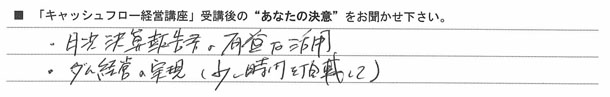 ■ 「キャッシュフロー経営講座」受講後の“あなたの決意”をお聞かせ下さい。
・月次決算報告書の有益な活用
・ダム経営の実現（少し時間を頂戴して）